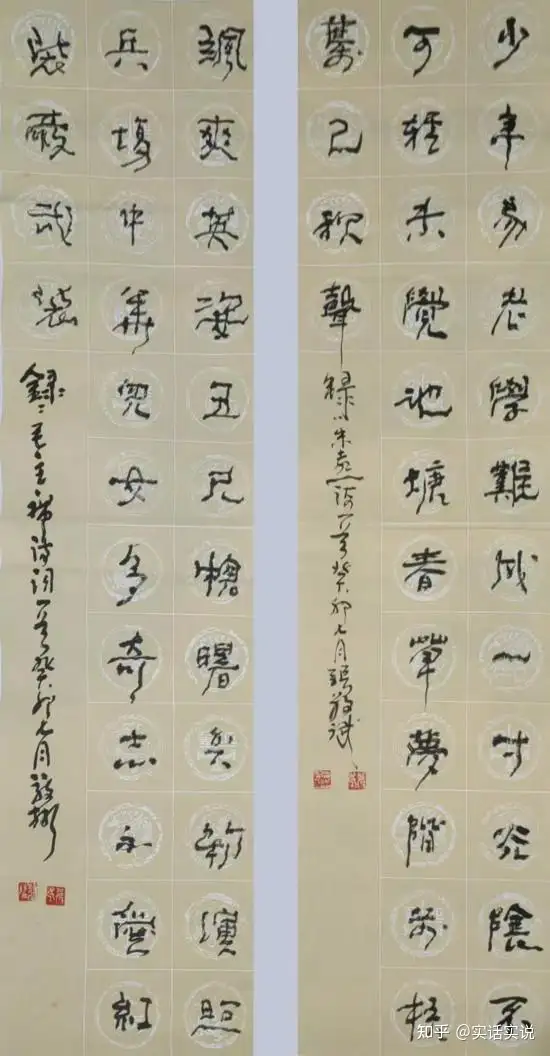 少年易老學難成一寸光陰不
可輕未覺池塘春草夢階前梧
葉已秋聲
錄朱熹詩一首癸卯七月
颯爽英姿五尺槍曙光初演照
兵場中華兒女多奇志不愛紅
裝愛武裝
錄毛主席詩詞一首癸卯七月
知乎 @实话实说